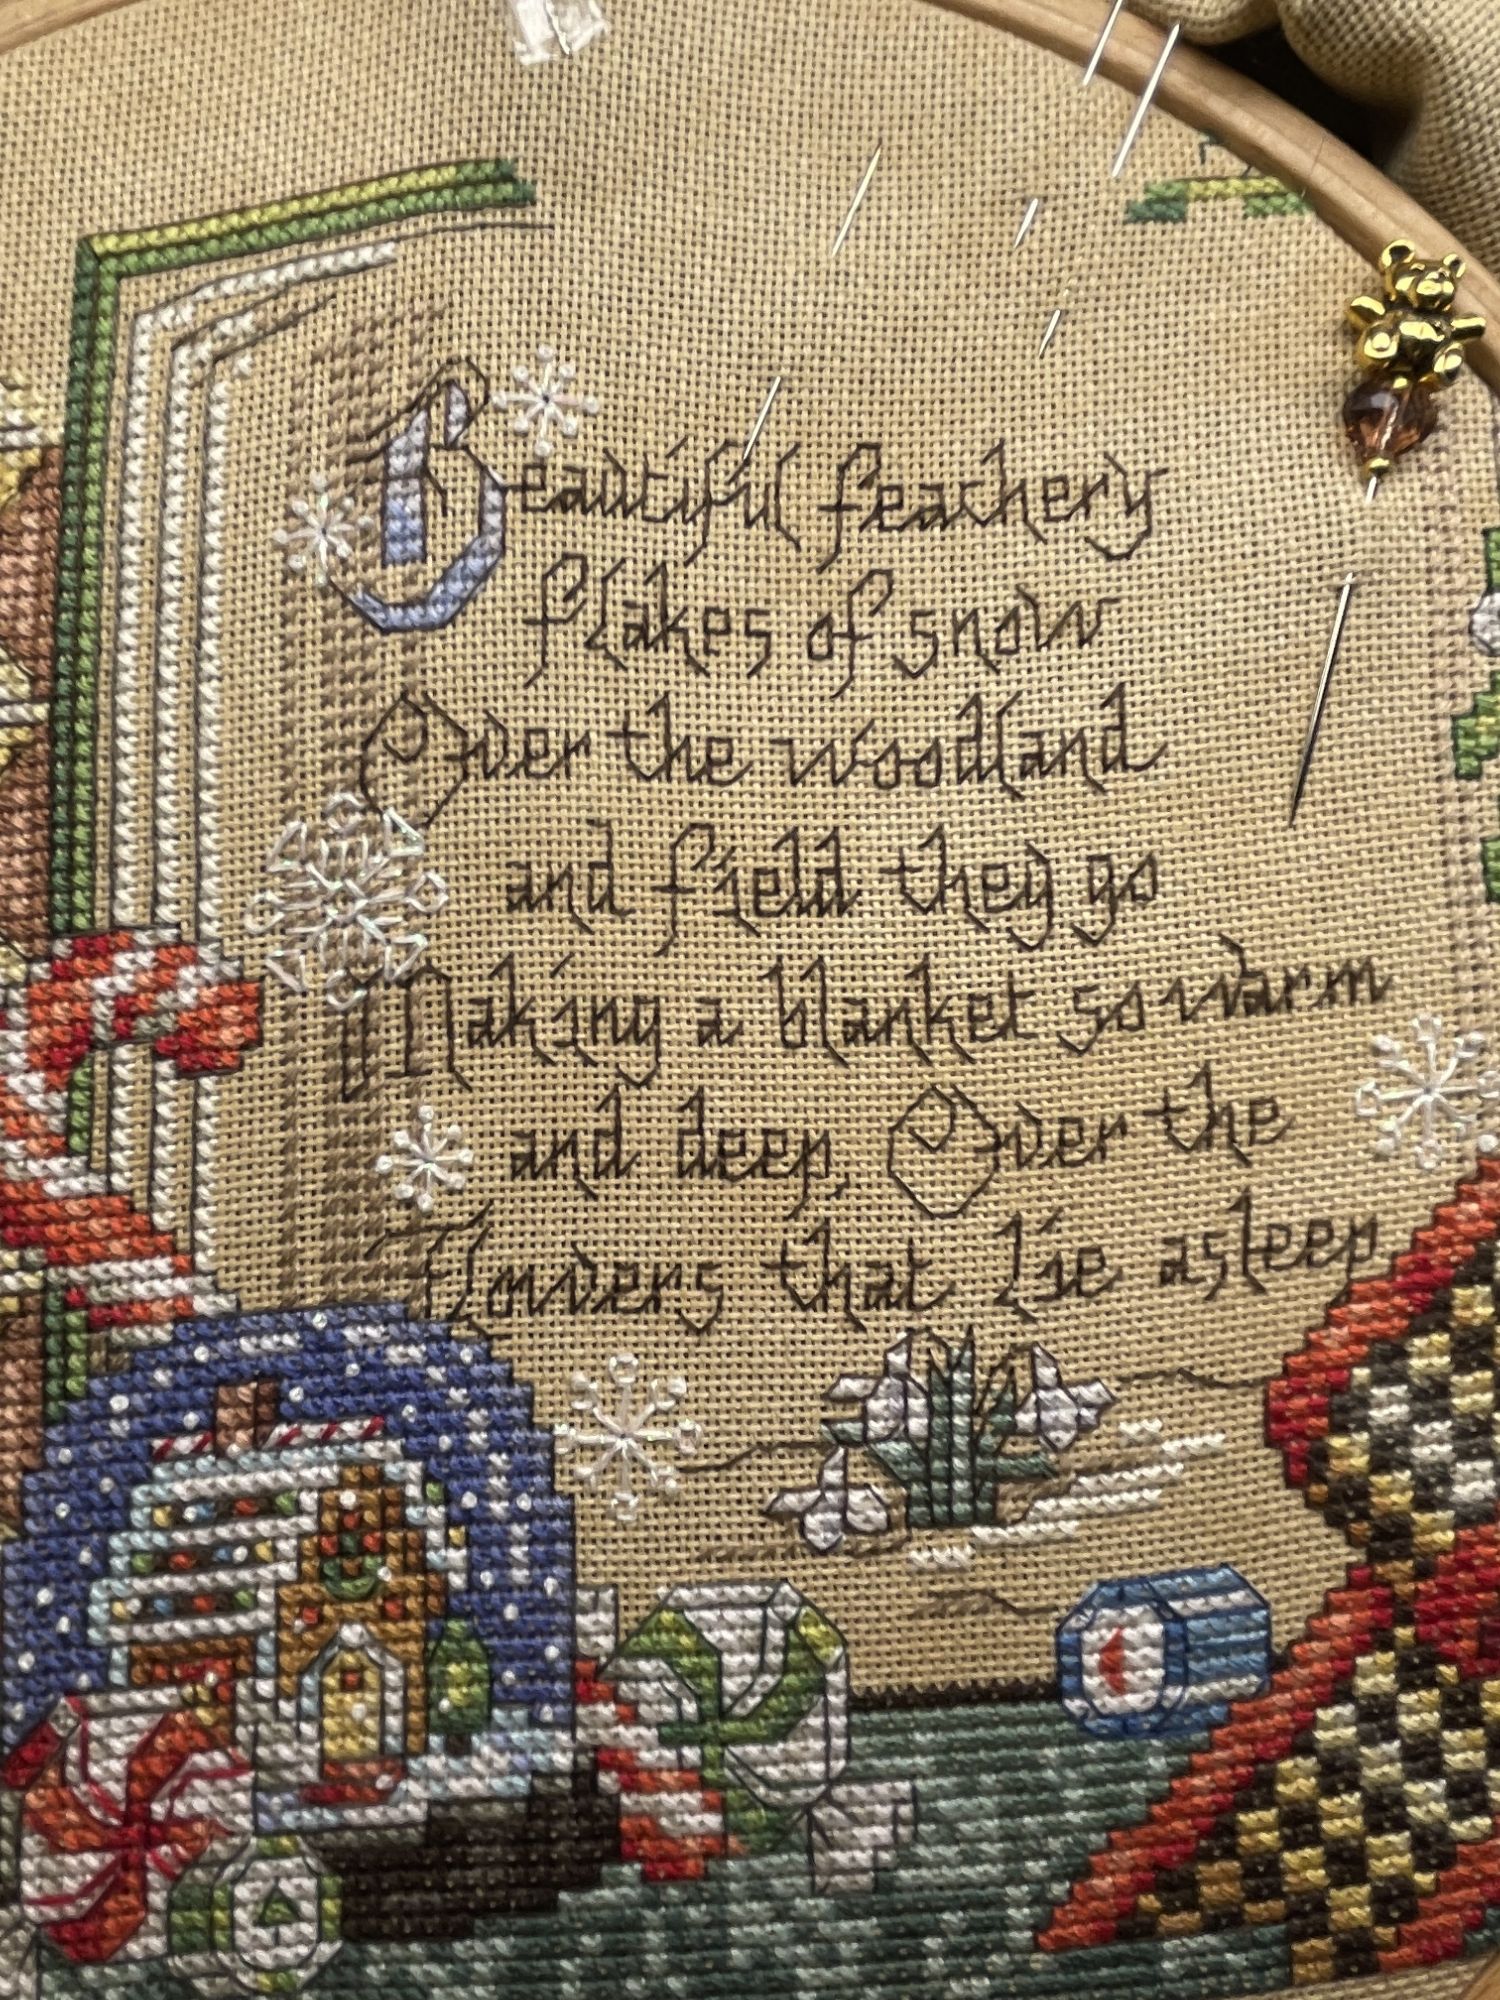 Beautiful feathery
flakes of snow
Over the woodland
and field they go
Making a blanket so warm
and deep, Over the
Flowers that lie asleep